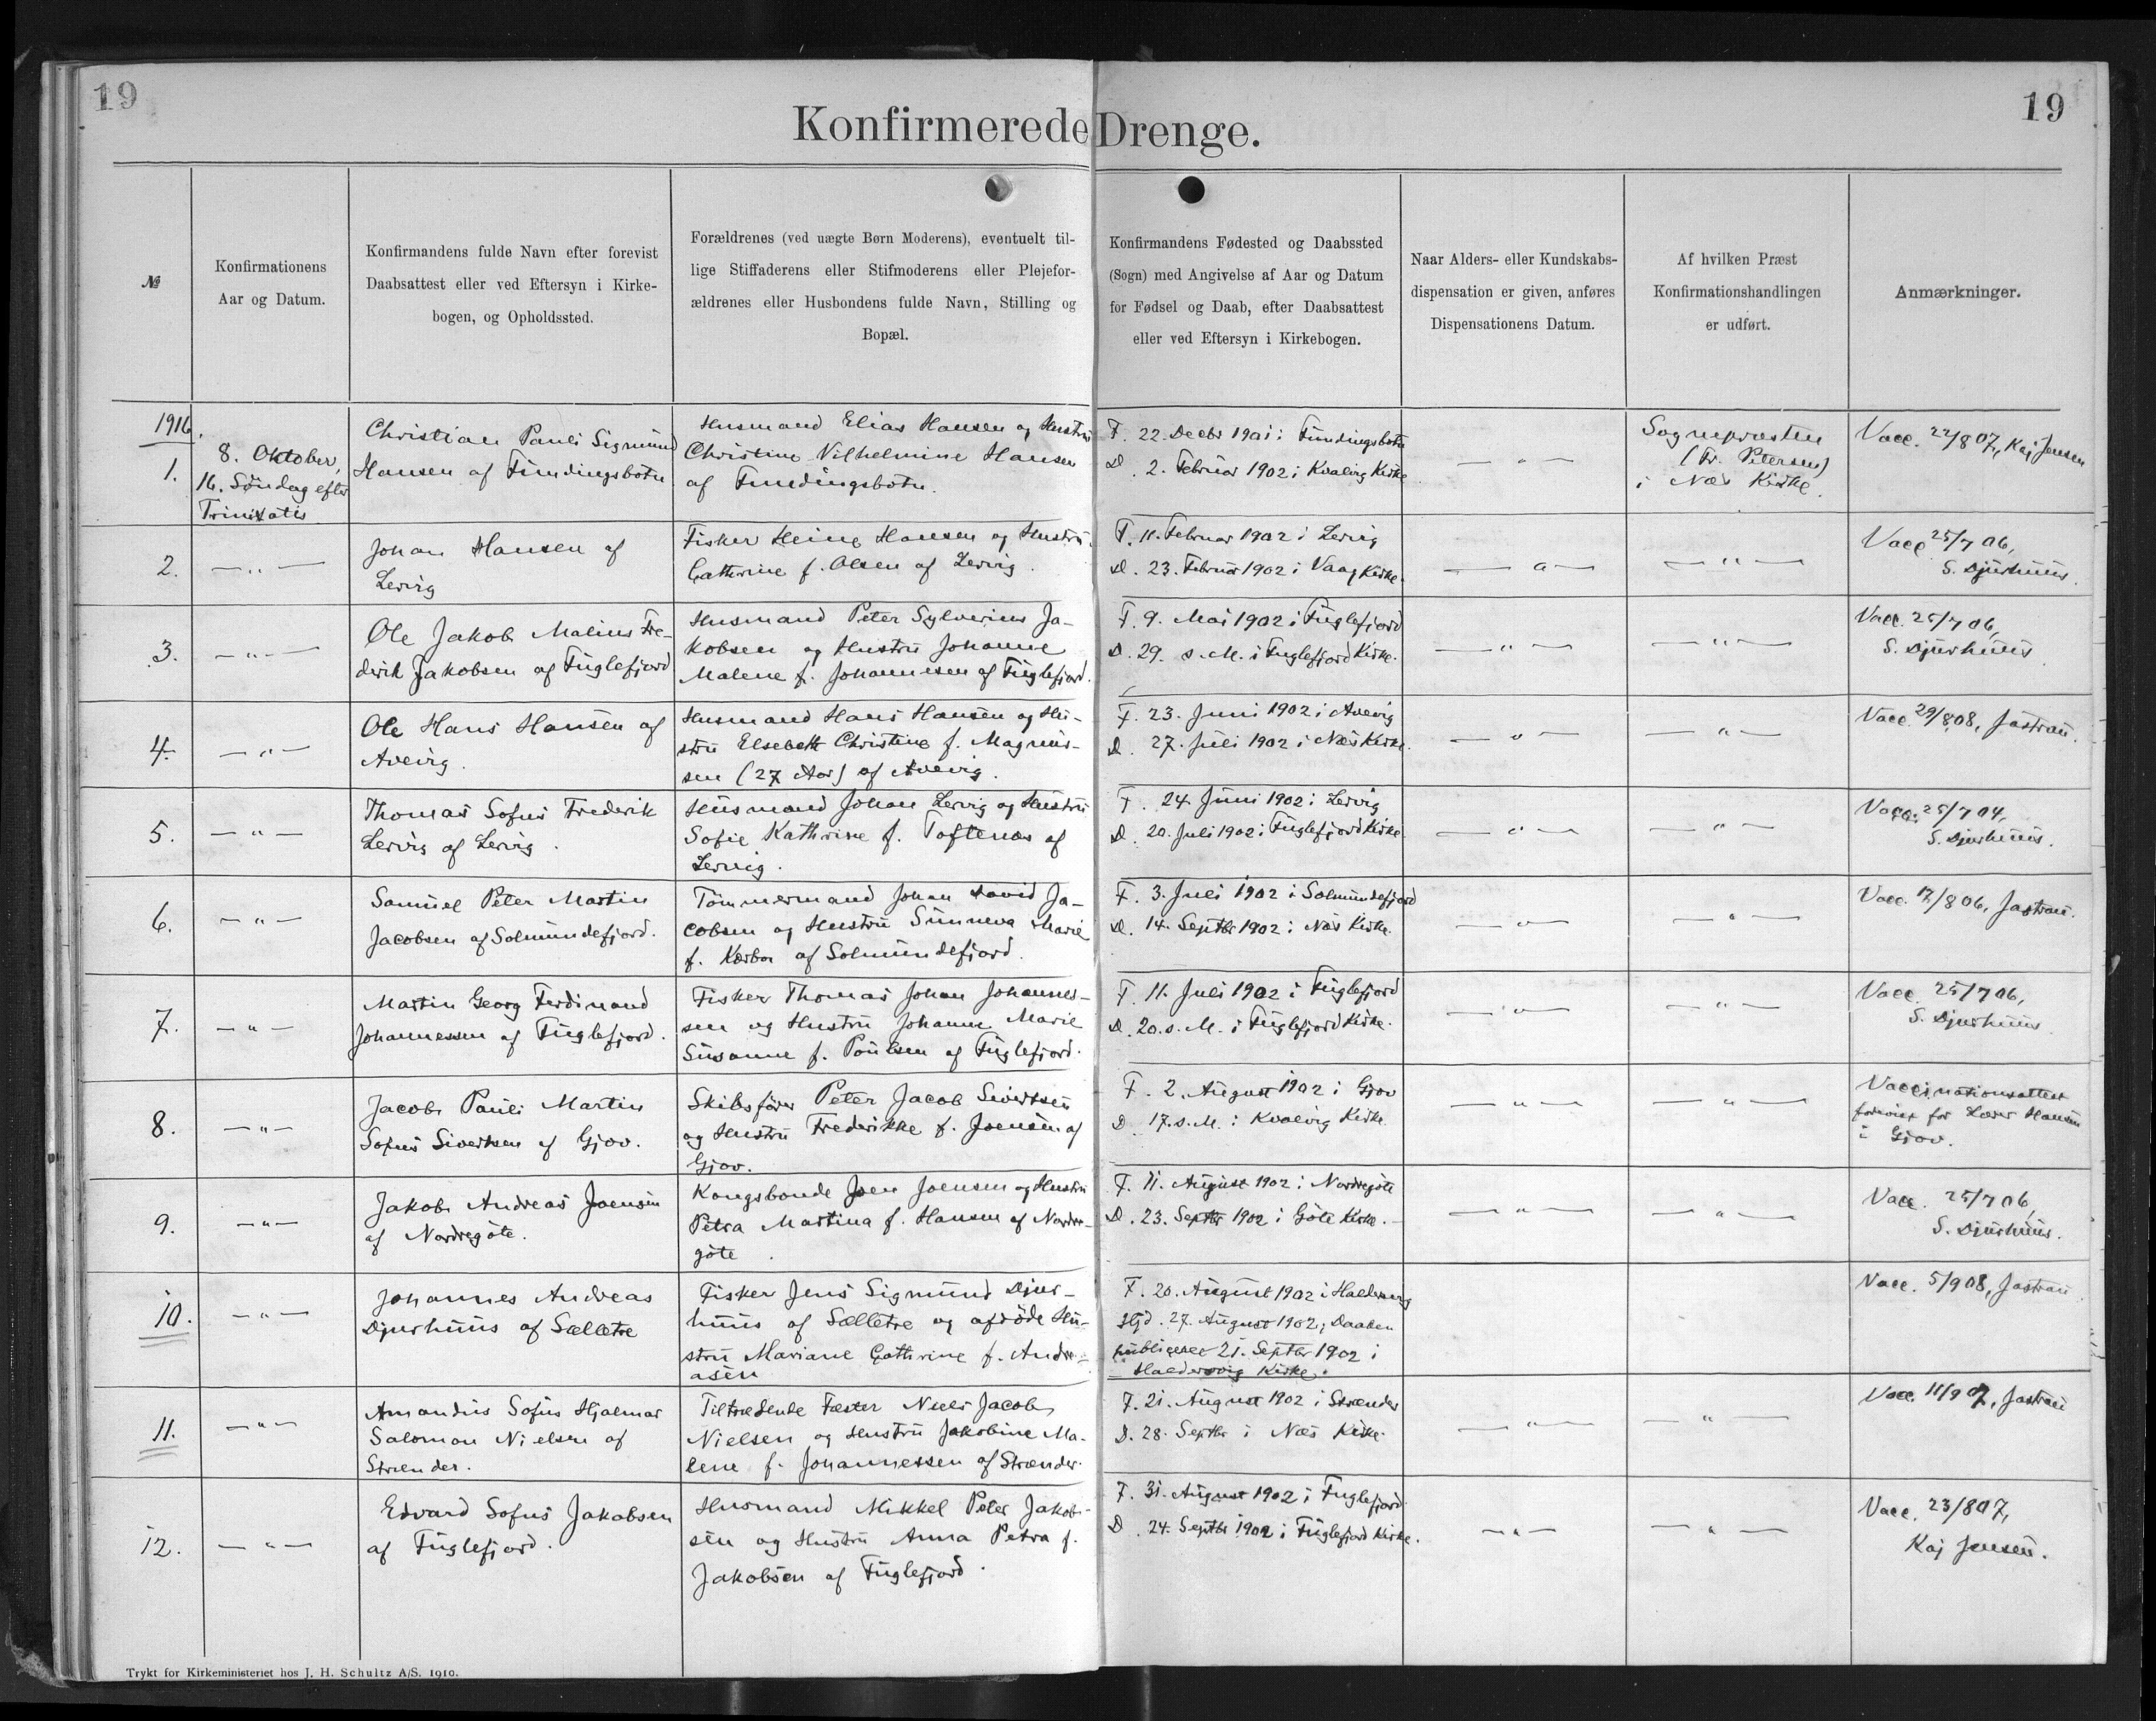 19
19
Konfirmerede Drenge.
№
Konfirmationens
Aar og Datum.
Konfirmandens fulde Navn efter forevist
Daabsattest eller ved Eftersyn i Kirke-
bogen, og Opholdssted.
Forældrenes (ved uægte Børn Moderens), eventuelt til-
lige Stiffaderens eller Stifmoderens eller Plejefor-
ældrenes eller Husbondens fulde Navn, Stilling og
Bopæl.
Konfirmandens Fødested og Daabssted
(Sogn) med Angivelse af Aar og Datum
for Fødsel og Daab, efter Daabsattest
eller ved Eftersyn i Kirkebogen.
Naar Alders- eller Kundskabs-
dispensation er given, anføres
Dispensationens Datum.
Af hvilken Præst
Konfirmationshandlingen
er udført.
Anmærkninger.
1916.
1.
8. Oktober,
16. Söndag efter
Trinitatis
Christian Pauli Sigmund
Hansen af Fundingsbotn
Husmand Elias Hansen og Hustru
Christine Vilhelmine Hansen
af Fundingsbotn.
F. 22. Decbr 1901 i Fundingsbotn
D. 2. Februar 1902 i Kvalvig Kirke
— " —
Sognepræsten
(Fr. Petersen)
i Næs Kirke.
Vacc. 22/8 07, Kaj Jensen
2.
— " —
Johan Hansen af
Lervig
Fisker Heine Hansen og Hustru
Cathrine f. Olsen af Lervig.
F. 11. Februar 1902 i Lervig
D. 23. Februar 1902 i Vaag Kirke.
— " —
— " —
Vacc. 25/7 06,
S. Djurhuus.
3.
— " —
Ole Jakob Malius Fre-
derik Jakobsen af Fuglefjord
Husmand Peter Sylverius Ja-
kobsen og Hustru Johanne
Malene f. Johannesen af Fuglefjord.
F. 9. Mai 1902 i Fuglefjord
D. 29. s. M. i Fuglefjord Kirke.
— " —
— " —
Vacc. 25/7 06,
S. Djurhuus
4.
— " —
Ole Hans Hansen af
Avevig.
Husmand Hans Hansen og Hu-
stru Elsebeth Christine f. Magnus-
sen (27 Aar) af Avevig.
F. 23. Juni 1902 i Avevig
D. 27. Juli 1902 i Næs Kirke.
— " —
— " —
Vacc. 29/8 08, Jastrau.
5.
— " —
Thomas Sofus Frederik
Lervig af Lervig.
Husmand Johan Lervig og Hustru
Sofie Kathrine f. Toftenæs af
Lervig.
F. 24. Juni 1902 i Lervig
D. 20. Juli 1902 i Fuglefjord Kirke
— " —
— " —
Vacc. 25/7 04,
S. Djurhuus.
6.
— " —
Samuel Peter Martin
Jacobsen af Solmundefjord.
Tömmermand Johan David Ja-
cobsen og Hustru Sunneva Marie
f. Kærbo af Solmundefjord.
F. 3. Juli 1902 i Solmundefjord
D. 14. Septbr 1902 i Næs Kirke.
— " —
— " —
Vacc. 17/8 06, Jastrau.
7.
— " —
Martin Georg Ferdinand
Johannessen af Fuglefjord.
Fisker Thomas Johan Johannes-
sen og Hustru Johanne Marie
Susanne f. Poulsen af Fuglefjord.
F. 11. Juli 1902 i Fuglefjord
D. 20. s. M. i Fuglefjord Kirke.
— " —
— " —
Vacc. 25/7 06,
S. Djurhuus
8.
— " —
Jacob Pauli Martin
Sofus Sivertsen af Gjov.
Skibsförer Peter Jacob Sivertsen
og Hustru Frederikke f. Joensen af
Gjov.
F. 2. August 1902 i Gjov
D. 17. s. M. i Kvalvig Kirke.
— " —
— " —
Vaccinationsattest
forevist for Lærer Hansen
i Gjov.
9.
— " —
Jakob Andreas Joensen
af Nordregöte.
Kongsbonde Joen Joensen og Hustru
Petra Martina f. Hansen af Nordre-
göte.
F. 11. August 1902 i Nordregöte
D. 23. Septbr 1902 i Göte Kirke.
— " —
— " —
Vacc. 25/7 06,
S. Djurhuus.
10.
— " —
Johannes Andreas
Djurhuus af Sælletre
Fisker Jens Sigmund Djur-
huus af Sælletre og afdöde Hu-
stru Mariane Cathrine f. Andre-
asen
F. 20. August 1902 i Haldervig
Hjd. 27. August 1902; Daaben
publiceret 21. Septbr 1902 i
Haldervig Kirke.
Vacc. 5/9 08, Jastrau
11.
— " —
Amandus Sofus Hjalmar
Salomon Nielsen af
Strænder.
Tiltrædende Fæster Niels Jacob
Nielsen og Hustru Jakobine Ma-
lene f. Johannessen af Strænder.
F. 21. August 1902 i Strænder
D. 28. Septbr i Næs Kirke.
— " —
— " —
Vacc. 11/9 07, Jastrau
12.
— " —
Edvard Sofus Jakobsen
af Fuglefjord.
Husmand Mikkel Peter Jakob-
sen og Hustru Anna Petra f.
Jakobsen af Fuglefjord.
F. 31. August 1902 i Fuglefjord
D. 24. Septbr 1902 i Fuglefjord Kirke.
— " —
— " —
Vacc. 23/8 07,
Kaj Jensen.
Trykt for Kirkeministeriet hos J. H. Schultz A/S. 1910.